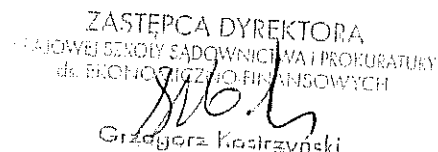 ZASTĘPCA DYREKTORA
KRAJOWEJ SZKOŁY SĄDOWNICTWA I PROKURATURY
ds. EKONOMICZNO-FINANSOWYCH
Grzegorz